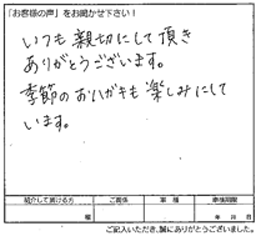 「お客様の声」をお聞かせ下さい！
いつも親切にして頂き
ありがとうございます。
季節のおハガキも楽しみにして
います。
紹介して頂ける方 ご関係 車種 車検期限
様 年 月 日
ご記入いただき、誠にありがとうございました。